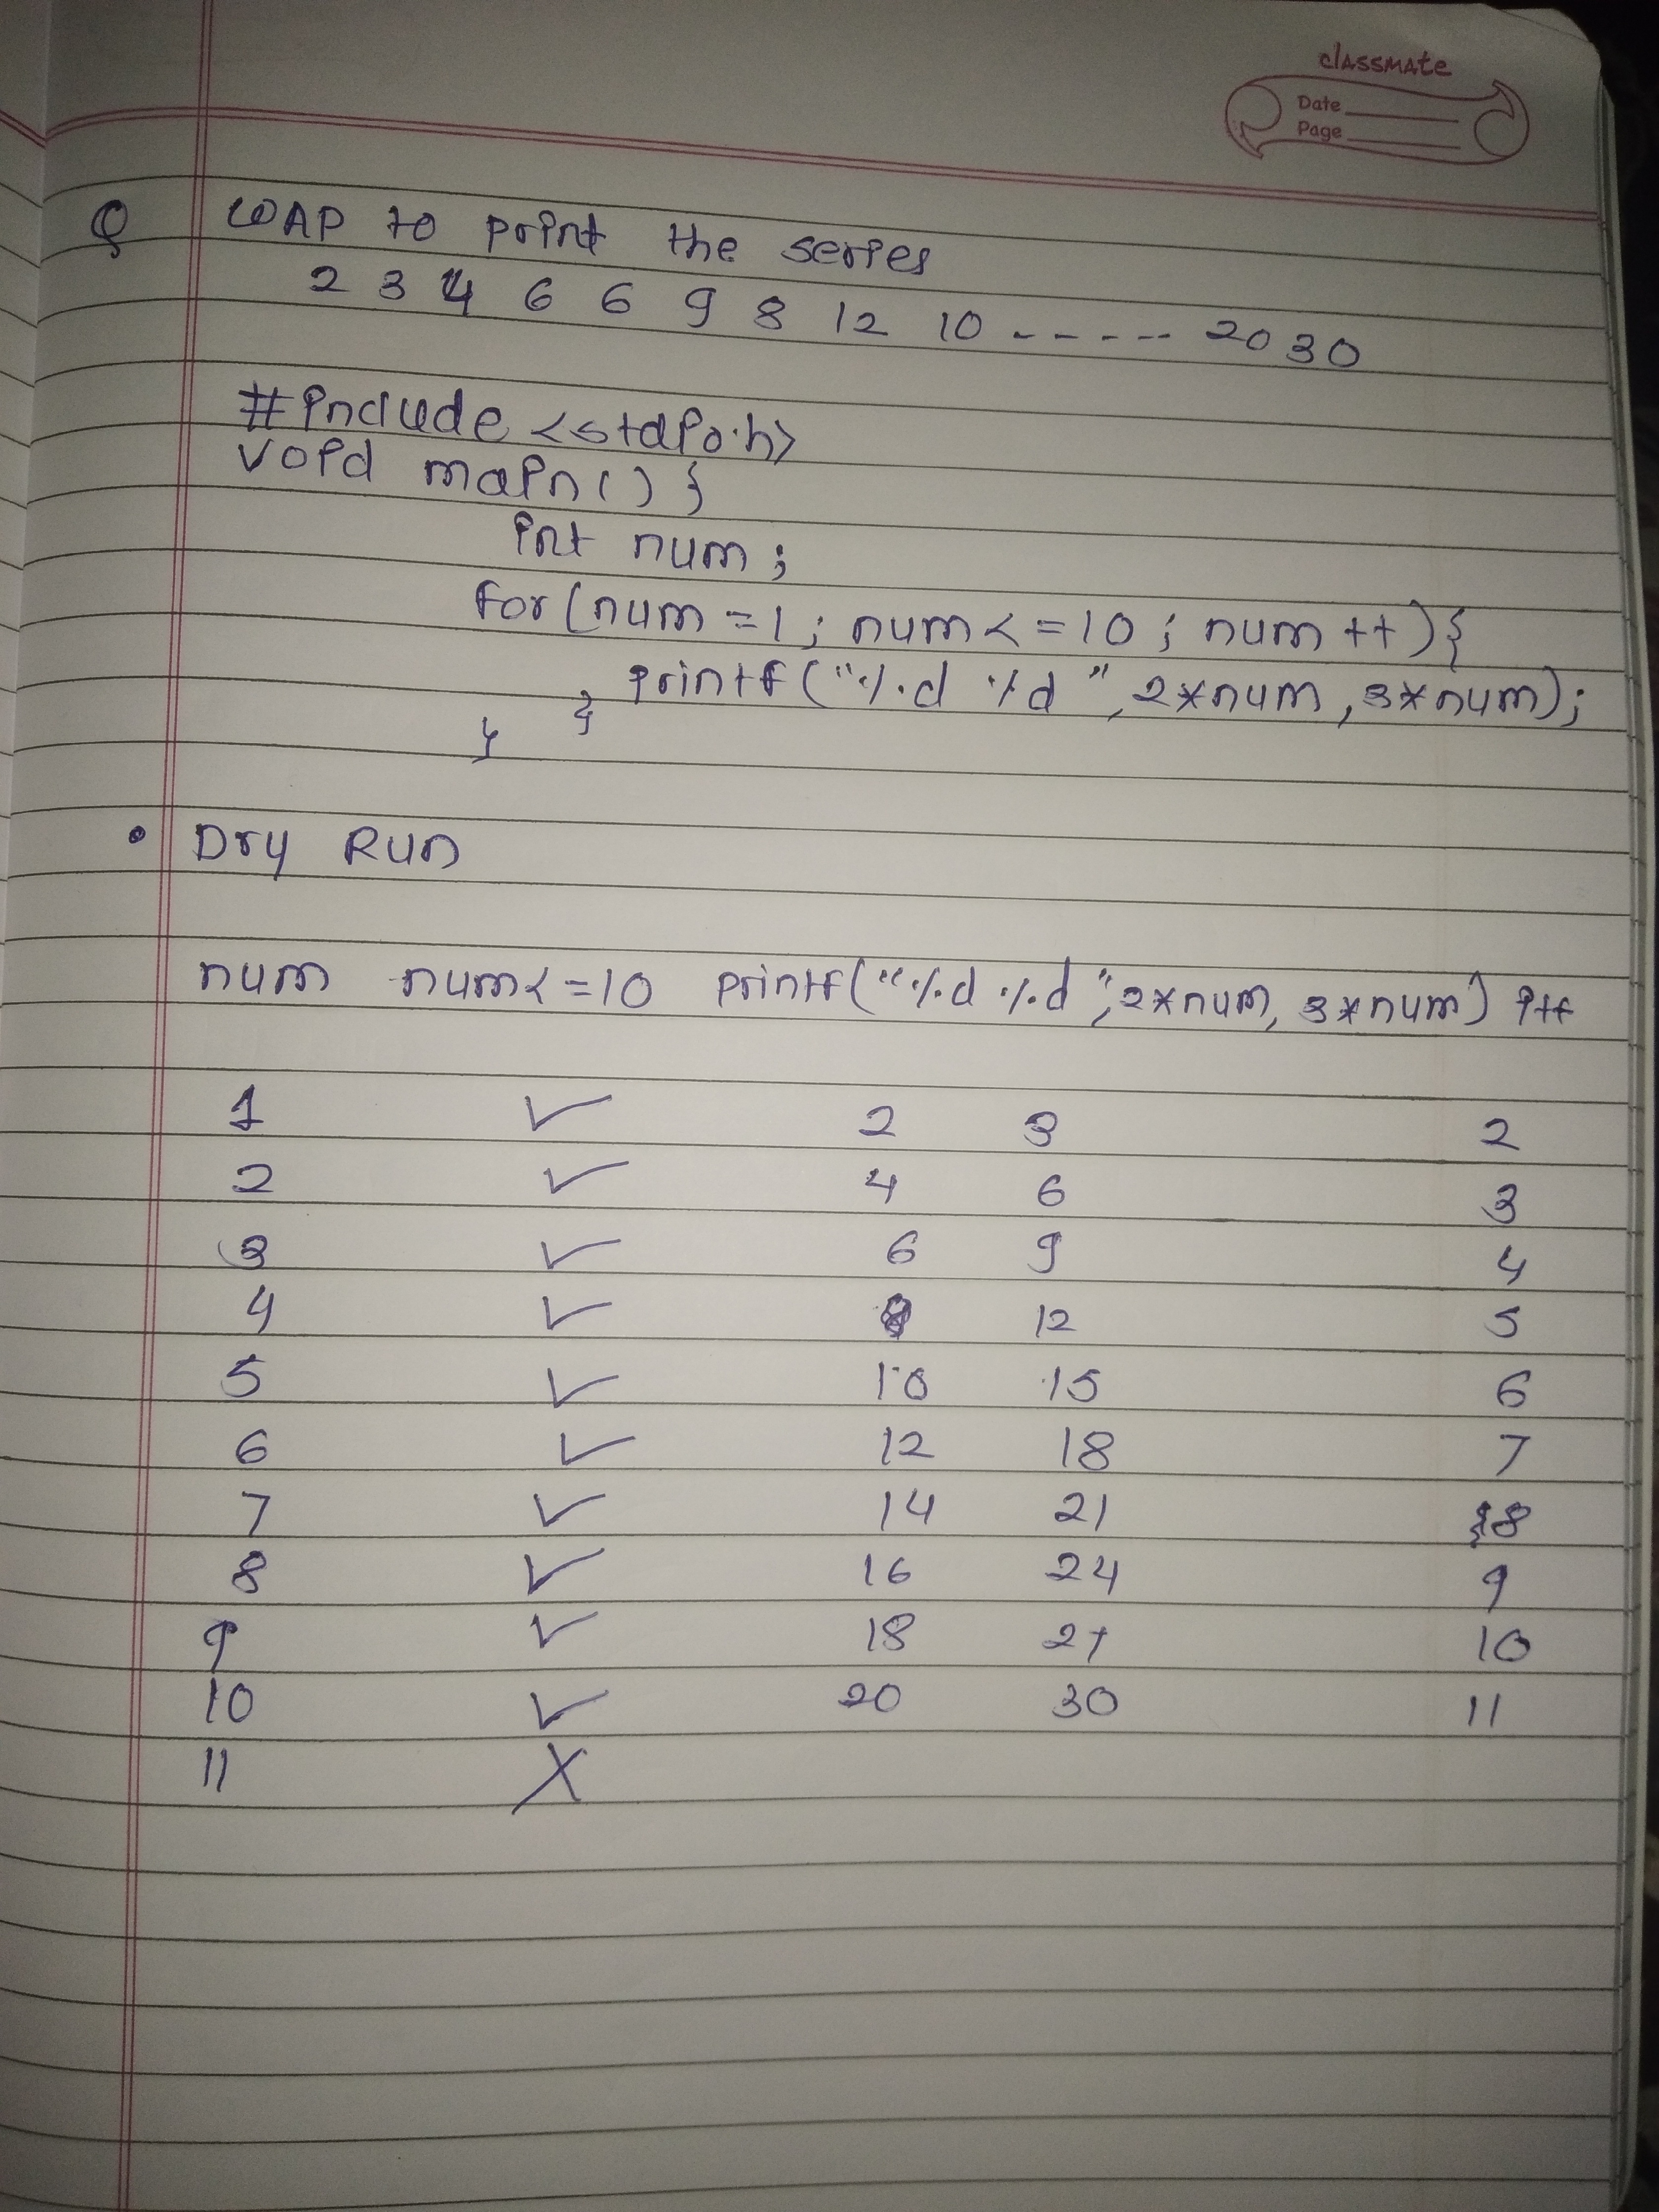 classmate
Date
Page
Q WAP to print the series
2 3 4 6 6 9 8 12 10 ----- 20 30
#include <stdio.h>
void main() {
int num;
for(num=1; num<=10; num++){
printf("%d %d ", 2*num, 3*num);
}
}
• Dry Run
num num<=10 printf("%d %d ", 2*num, 3*num) i++
1 ✓ 2 3 2
2 ✓ 4 6 3
3 ✓ 6 9 4
4 ✓ 8 12 5
5 ✓ 10 15 6
6 ✓ 12 18 7
7 ✓ 14 21 8
8 ✓ 16 24 9
9 ✓ 18 27 10
10 ✓ 20 30 11
11 X